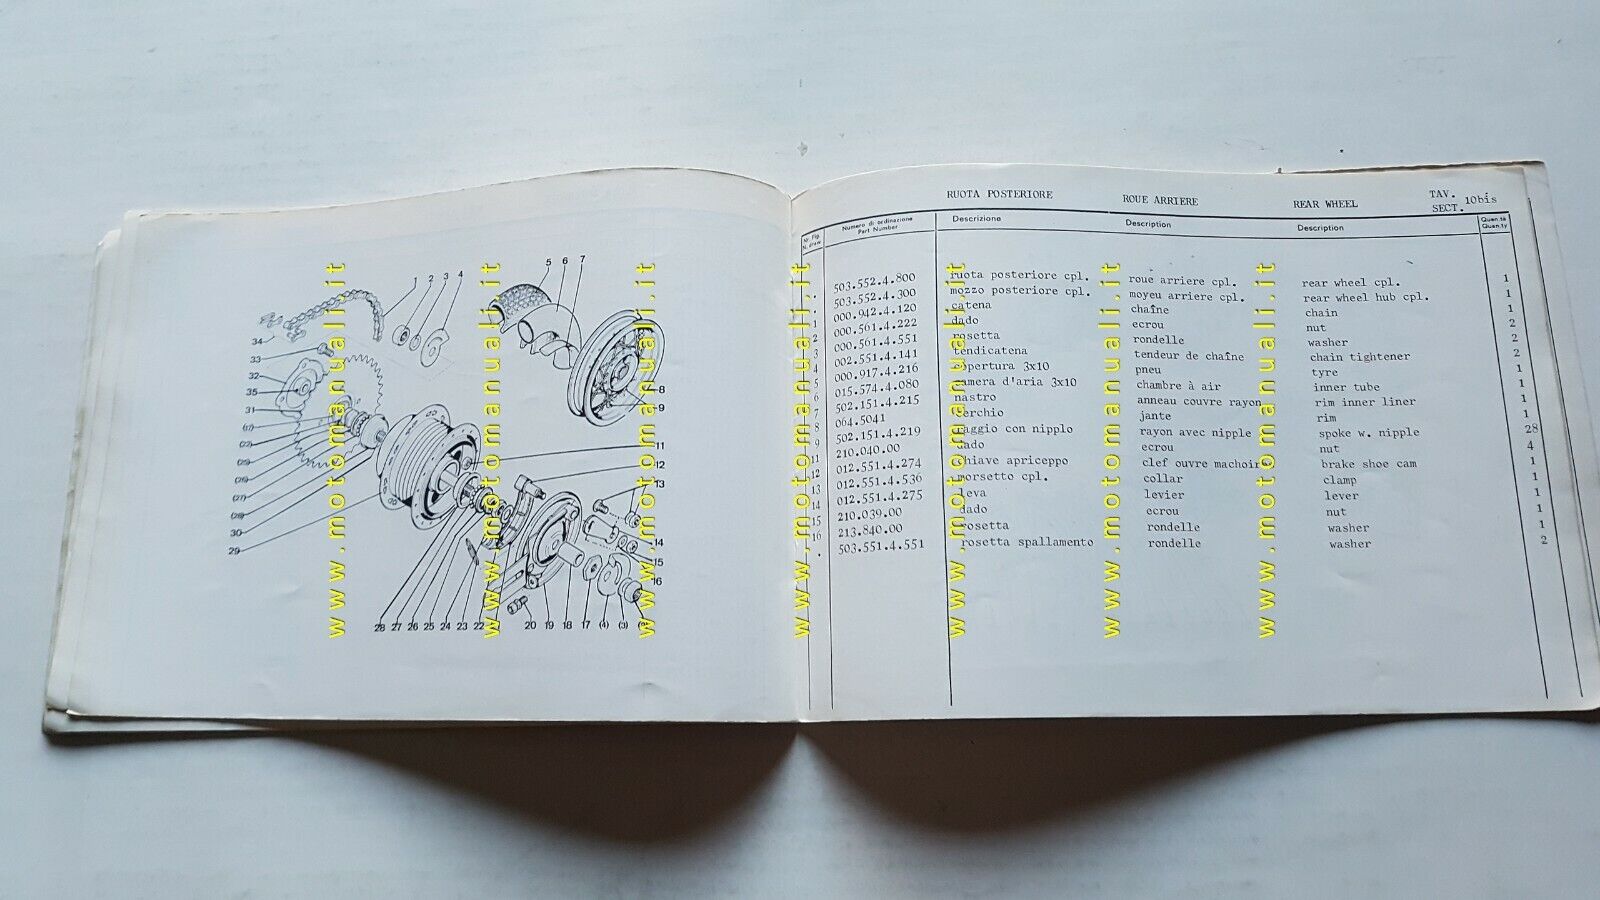 RUOTA POSTERIORE ROUE ARRIERE REAR WHEEL TAV. SECT. 10bis
Nr. Fig. N. draw Numero di ordinazione Part Number Descrizione Description Description Quan.tà Quan.ty
. 503.552.4.800 ruota posteriore cpl. roue arriere cpl. rear wheel cpl. 1
. 503.552.4.300 mozzo posteriore cpl. moyeu arriere cpl. rear wheel hub cpl. 1
1 000.942.4.120 catena chaîne chain 1
2 000.561.4.222 dado ecrou nut 2
3 000.561.4.551 rosetta rondelle washer 2
4 002.551.4.141 tendicatena tendeur de chaîne chain tightener 2
5 000.917.4.216 copertura 3x10 pneu tyre 1
6 015.574.4.080 camera d'aria 3x10 chambre à air inner tube 1
7 502.151.4.215 nastro anneau couvre rayon rim inner liner 1
8 064.5041 cerchio jante rim 1
9 502.151.4.219 raggio con nipplo rayon avec nipple spoke w. nipple 28
11 210.040.00 dado ecrou nut 4
12 012.551.4.274 chiave apriceppo clef ouvre machoires brake shoe cam 1
13 012.551.4.536 morsetto cpl. collar clamp 1
14 012.551.4.275 leva levier lever 1
15 210.039.00 dado ecrou nut 1
16 213.840.00 rosetta rondelle washer 1
. 503.551.4.551 rosetta spallamento rondelle washer 2
1 2 3 4 5 6 7
34
33
32
35
31
8
9
11
12
13
14
15
16
30
29
28 27 26 25 24 23 22 20 19 18 17 (4) (3)
www.motomanuali.it
www.motomanuali.it
www.motomanuali.it
www.motomanuali.it
www.motomanuali.it
www.motomanuali.it
www.motomanuali.it